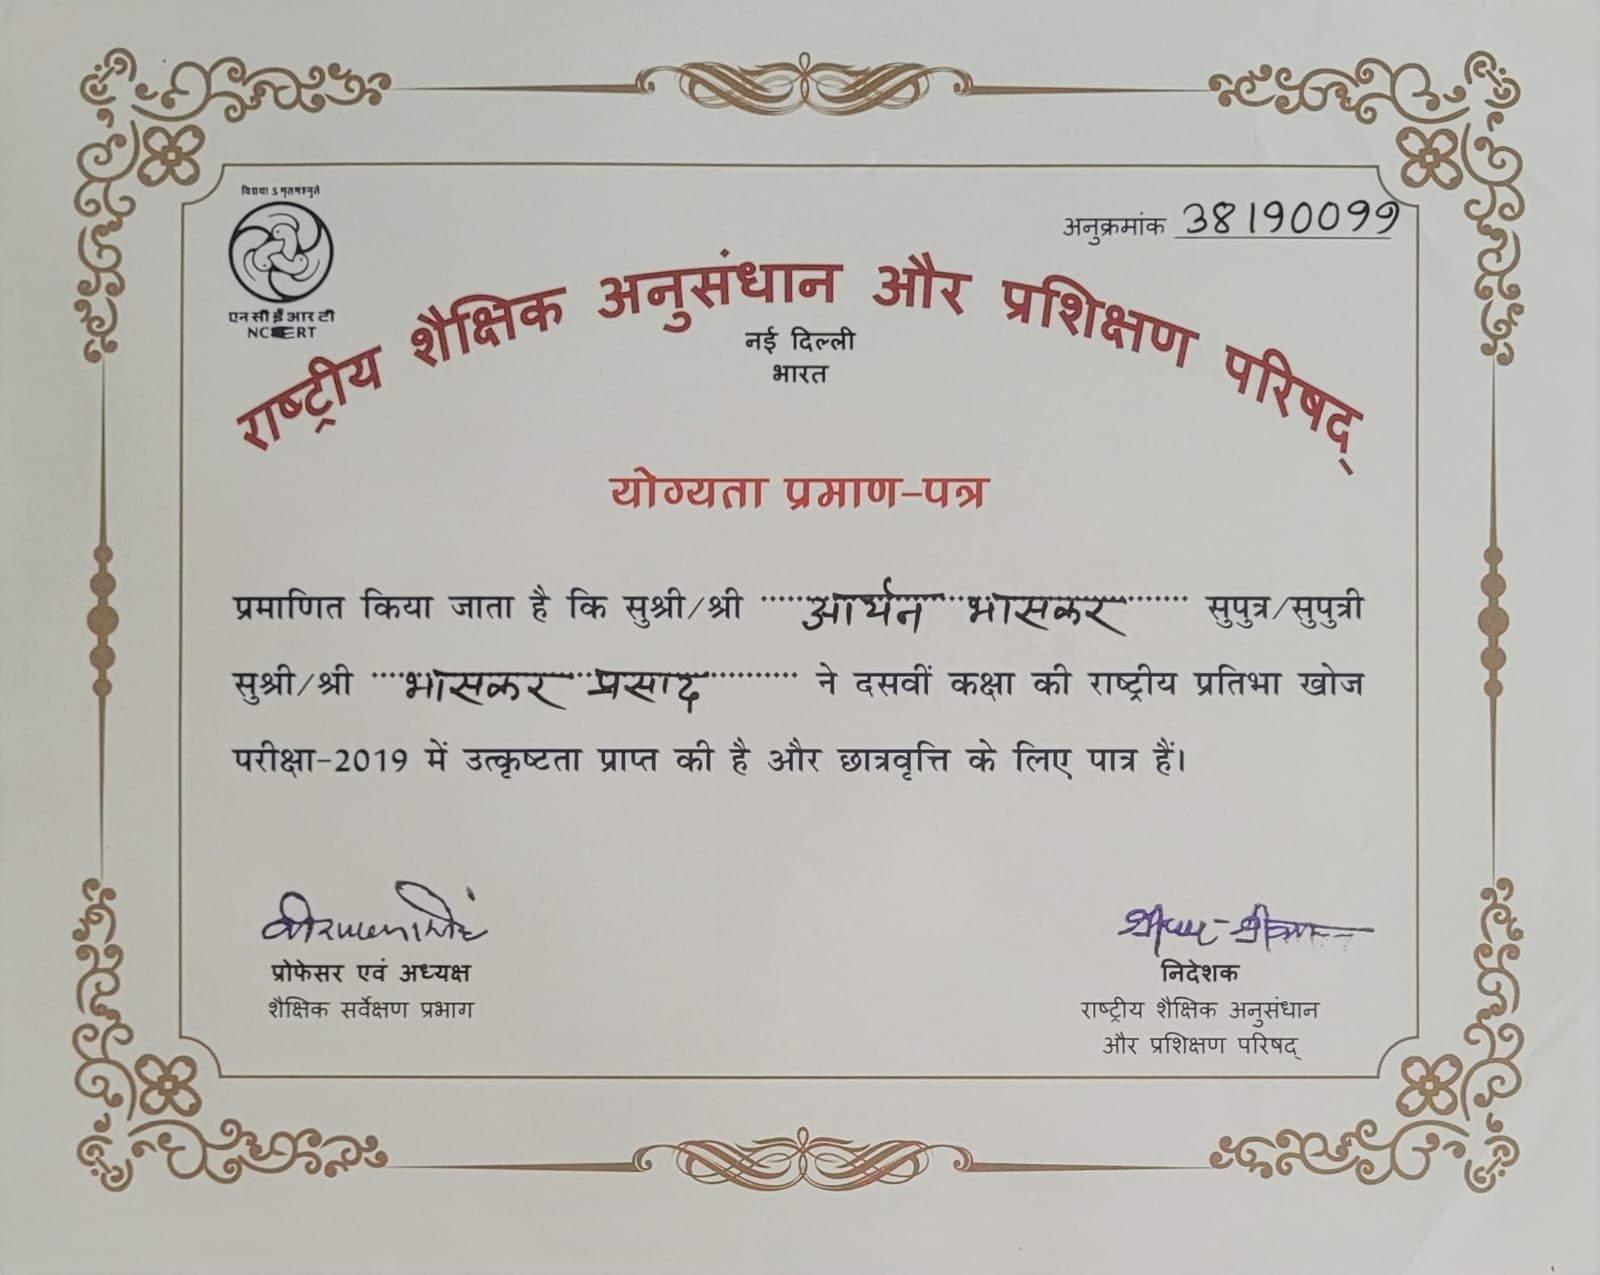 विद्यया ऽ मृतमश्नुते
एन सी ई आर टी
NCERT
अनुक्रमांक 38190099
राष्ट्रीय शैक्षिक अनुसंधान और प्रशिक्षण परिषद्
नई दिल्ली
भारत
योग्यता प्रमाण-पत्र
प्रमाणित किया जाता है कि सुश्री/श्री आर्यन भास्कर सुपुत्र/सुपुत्री
सुश्री/श्री भास्कर प्रसाद ने दसवीं कक्षा की राष्ट्रीय प्रतिभा खोज
परीक्षा-2019 में उत्कृष्टता प्राप्त की है और छात्रवृत्ति के लिए पात्र हैं।
प्रोफेसर एवं अध्यक्ष
शैक्षिक सर्वेक्षण प्रभाग
निदेशक
राष्ट्रीय शैक्षिक अनुसंधान
और प्रशिक्षण परिषद्